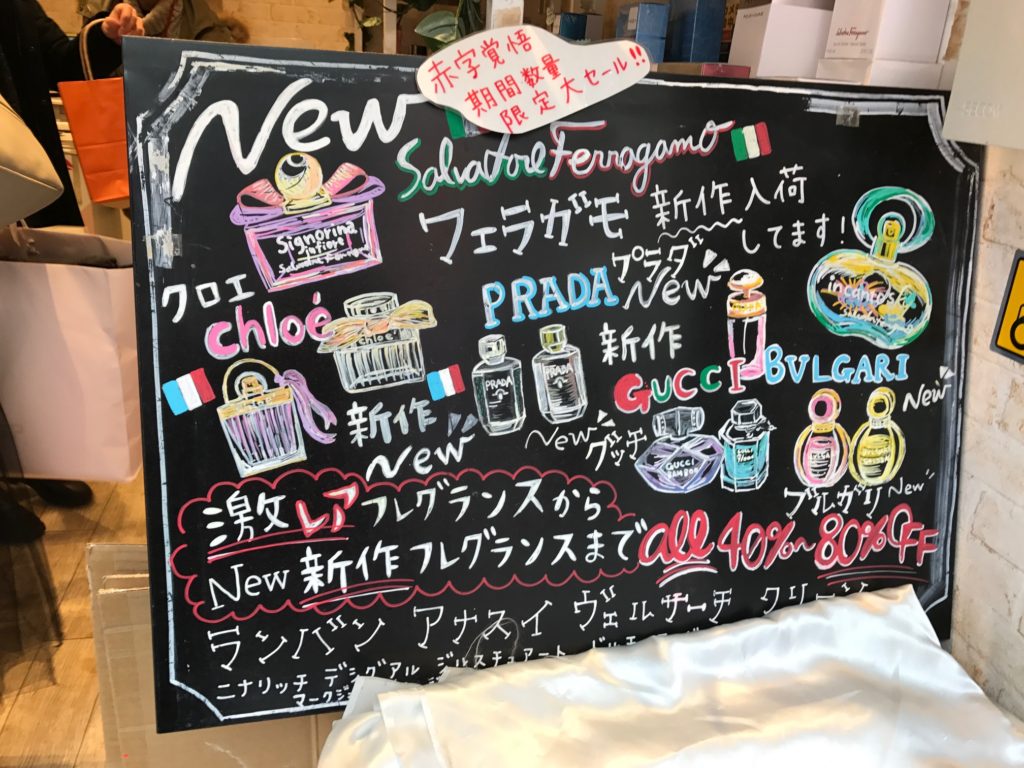 赤字覚悟
期間数量
限定大セール!!
New
Salvatore Ferragamo
フェラガモ 新作入荷
してます!
Signorina
クロエ
chloé
chloé
新作
New
PRADA
プラダ
New
新作
PRADA
PRADA
incanto
GUCCI
New グッチ
GUCCI
BAMBOO
BVLGARI
New
ブルガリ New
激レアフレグランスから
New 新作フレグランスまで all 40%~80%OFF
ランバン アナスイ ヴェルサーチ クリーン
ニナリッチ デシグアル ジルスチュアート
マークジ